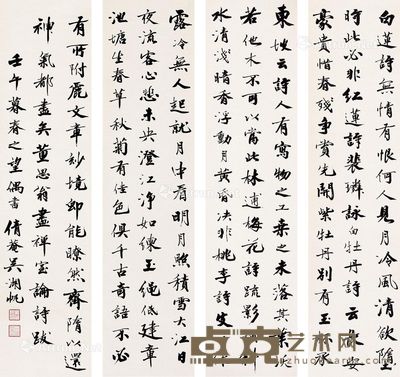 白蓮詩無情有恨何人見月冷風清欲墮
時此必非紅蓮詩裴璘詠白牡丹詩云長安
豪貴惜春殘爭賞先開紫牡丹別有玉承
東坡云詩人有寫物之工桑之未落其葉沃
若他木不可以當此林逋梅花詩疏影橫斜
水清淺暗香浮動月黃昏決非桃李詩
露冷無人起就月中看明月照積雪大江日
夜流客心悲未央澄江淨如練玉繩低建章
池塘生春草秋菊有佳色俱千古奇語不必
有所附麗文章妙境即能瞭然齊隋以還
神氣都盡矣董思翁畫禪室論詩跋
壬午暮春之望偶書 倩庵吳湖帆